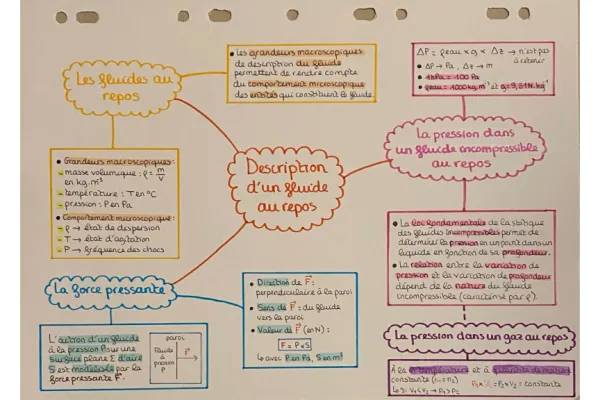 Description
d'un fluide
au repos
Les fluides au
repos
• Les grandeurs macroscopiques
de description du fluide
permettent de rendre compte
du comportement microscopique
des entités qui constituent le fluide.
• Grandeurs macroscopiques:
- masse volumique : ρ = m/V
en kg.m³
- température : T en °C
- pression : P en Pa
• Comportement microscopique:
- ρ → état de dispersion
- T → état d'agitation
- P → fréquence des chocs
La force pressante
L'action d'un fluide
à la pression P sur une
surface plane E d'aire
S est modélisée par la
force pressante F.
paroi
Fluide
à
pression
P
F
• Direction de F :
perpendiculaire à la paroi
• Sens de F : du fluide
vers la paroi
• Valeur de F (en N) :
F = P×S
↳ avec P en Pa, S en m²
ΔP = ρeau × g × Δz → n'est pas
à retenir
• ΔP → Pa , Δz → m
• 1 hPa = 100 Pa
• ρeau = 1000 kg.m⁻³ et g = 9,81 N.kg⁻¹
La pression dans
un fluide incompressible
au repos
• La loi fondamentale de la statique
des fluides incompressibles permet de
déterminer la pression en un point dans un
liquide en fonction de sa profondeur.
• La relation entre la variation de
pression et la variation de profondeur
dépend de la nature du fluide
incompressible (caractérisé par ρ).
La pression dans un gaz au repos
À la température et à quantité de matière
constante (n₁ = n₂)
P₁×V₁ = P₂×V₂ = constante
↳ si V₁ < V₂ → P₁ > P₂